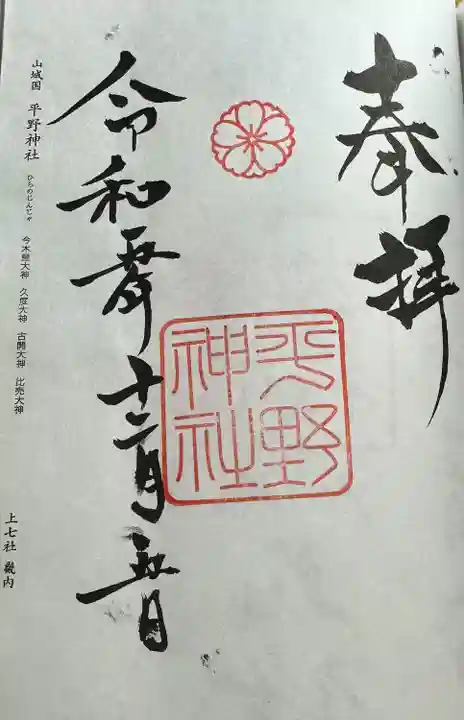 奉拝
平野
神社
令和年十二月五日
山城国 平野神社 ひらのじんじゃ 今木皇大神 久度大神 古開大神 比売大神 上七社 畿内